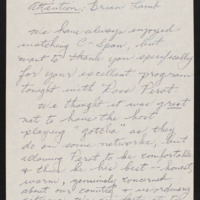 Attention: Brian Lamb
We have always enjoyed
watching C-Span, but
want to thank you specifically
for your excellent program
tonight with Ross Perot.
We thought it was great
not to have the host
playing "gotcha" as they
do on some networks, but
allowing Perot to be comfortable
& thus be his best -- honest,
warm, genuinely concerned
about our country & us ordinary